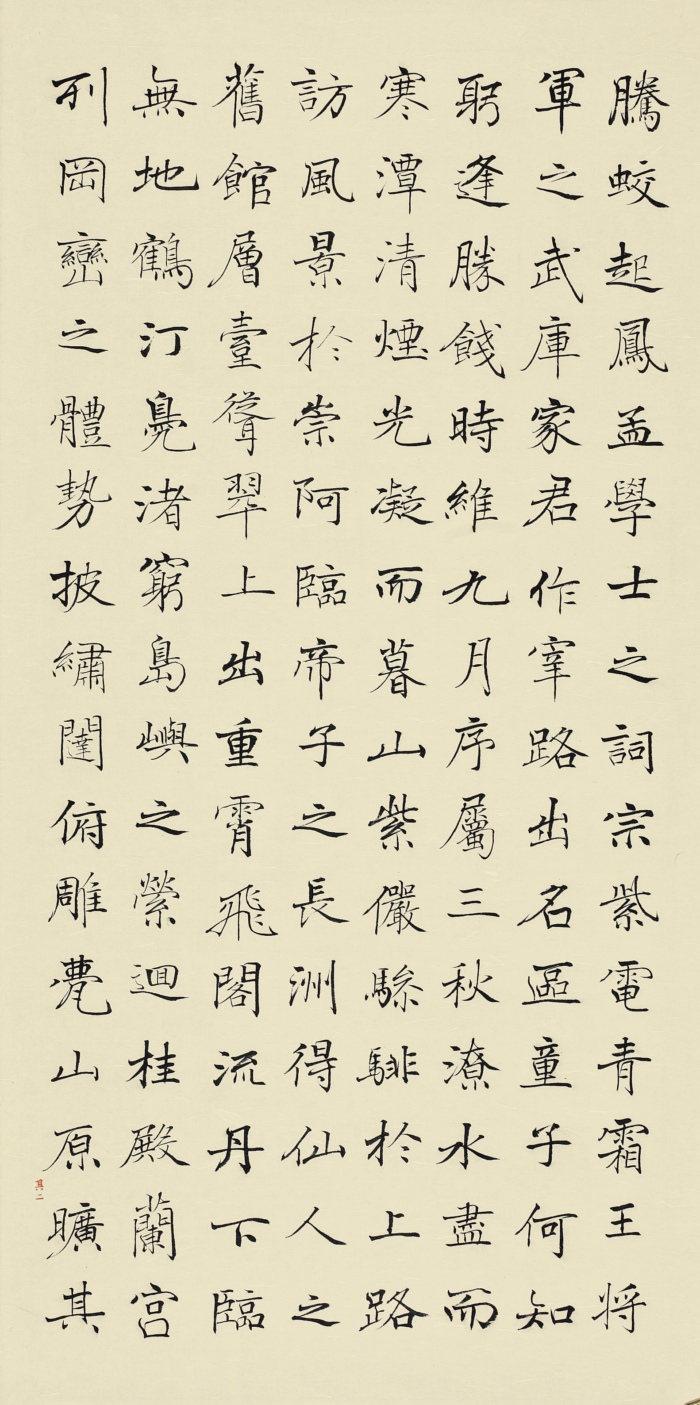 騰蛟起鳳孟學士之詞宗紫電青霜王将
軍之武庫家君作宰路出名區童子何知
躬逢勝餞時維九月序屬三秋潦水盡而
寒潭清煙光凝而暮山紫儼驂騑於上路
訪風景於崇阿臨帝子之長洲得仙人之
舊館層臺聳翠上出重霄飛閣流丹下臨
無地鶴汀鳧渚窮島嶼之縈迴桂殿蘭宫
列岡巒之體勢披繡闥俯雕甍山原曠其
其二